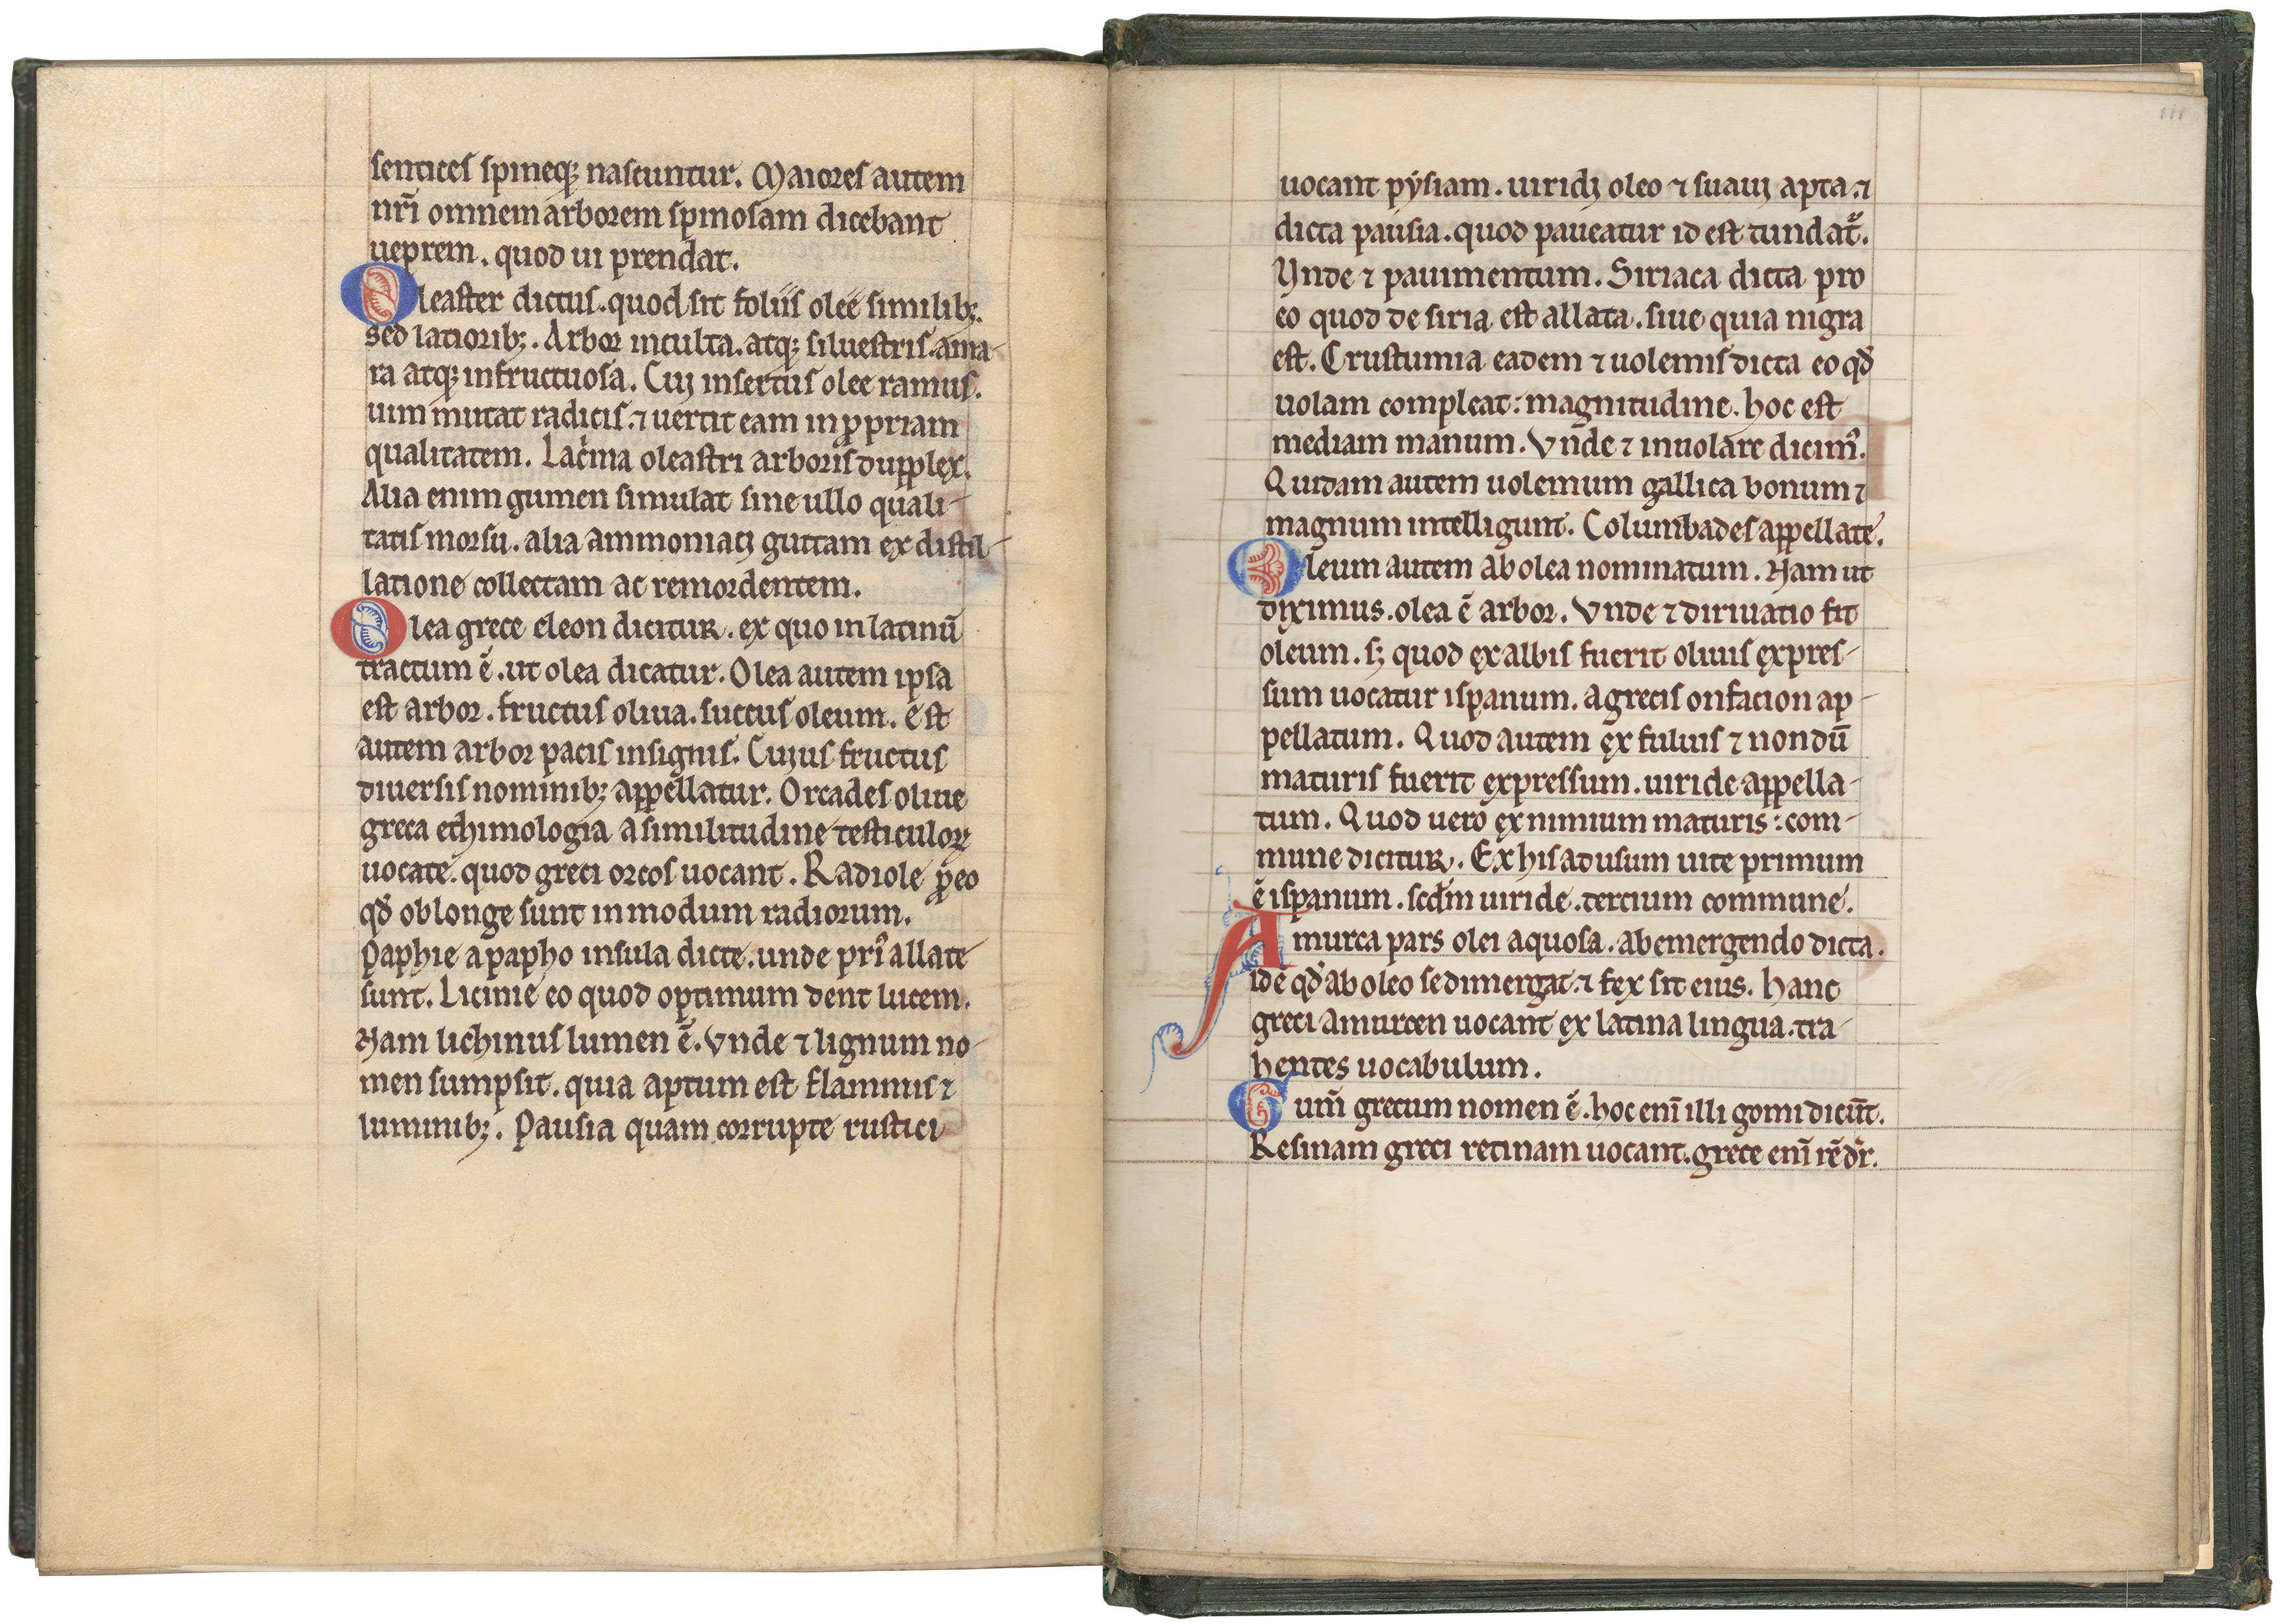 sentices spineq; nascuntur. Maiores autem
nr̄i omnem arborem spinosam dicebant
ueprem. quod ui prendat.
Oleaster dictus. quod sit foliis olee similib;.
sed latiorib;. Arbor inculta. atq; siluestris. ama-
ra atq; infructuosa. Cui insertus olee ramus.
uim mutat radicis. ⁊ uertit eam in ꝓpriam
qualitatem. Lac̓ma oleastri arboris dupplex.
Alia enim gumen simulat sine ullo quali-
tatis morsu. alia ammoniaci guttam ex distil-
latione collectam ac remordentem.
Olea grece eleon dicitur. ex quo in latinū
tractum ē. ut olea dicatur. Olea autem ipsa
est arbor. fructus oliua. succus oleum. Est
autem arbor pacis insignis. Cuius fructus
diuersis nominib; appellatur. Orcades oliue
greca ethimologia a similitudine testiculoꝝ
uocate. quod greci orcos uocant. Radiole ꝑ eo
qd̄ oblonge sunt in modum radiorum.
Paphie a papho insula dicte. unde pri᷒ allate
sunt. Licinie eo quod optimum dent lucem.
Nam lichinus lumen ē. Vnde ⁊ lignum no-
men sumpsit. quia aptum est flammis ⁊
luminib;. Pausia quam corrupte rustici
III
uocant pẏsiam. uiridi oleo ⁊ suaui apta. ⁊
dicta pausia. quod paueatur id est tundat᷑.
Vnde ⁊ pauimentum. Siriaca dicta pro
eo quod de siria est allata. siue quia nigra
est. Crustumia eadem ⁊ uolemis dicta eo qd̄
uolam compleat: magnitudine. hoc est
mediam manum. Vnde ⁊ inuolare dicim᷒.
Quidam autem uolemum gallica bonum ⁊
magnum intelligunt. Columbades appellate.
Oleum autem ab olea nominatum. Nam ut
diximus. olea ē arbor. Vnde ⁊ diriuatio fit
oleum. s; quod ex albis fuerit oliuis expres-
sum uocatur ispanum. a grecis onfacion ap-
pellatum. Quod autem ex fuluis ⁊ nondū
maturis fuerit expressum. uiride appella-
tum. Quod uero ex nimium maturis: com-
mune dicitur. Ex his ad usum uite primum
ē ispanum. scd̄m uiride. tercium commune.
Amurca pars olei aquosa. ab emergendo dicta.
id ē qd̄ ab oleo se dimergat. ⁊ fex sit eius. hanc
greci amurcen uocant ex latina lingua. tra-
hentes uocabulum.
Gum̄ grecum nomen ē. hoc enī illi gomi dicūt.
Resinam greci retinam uocant. grece enī